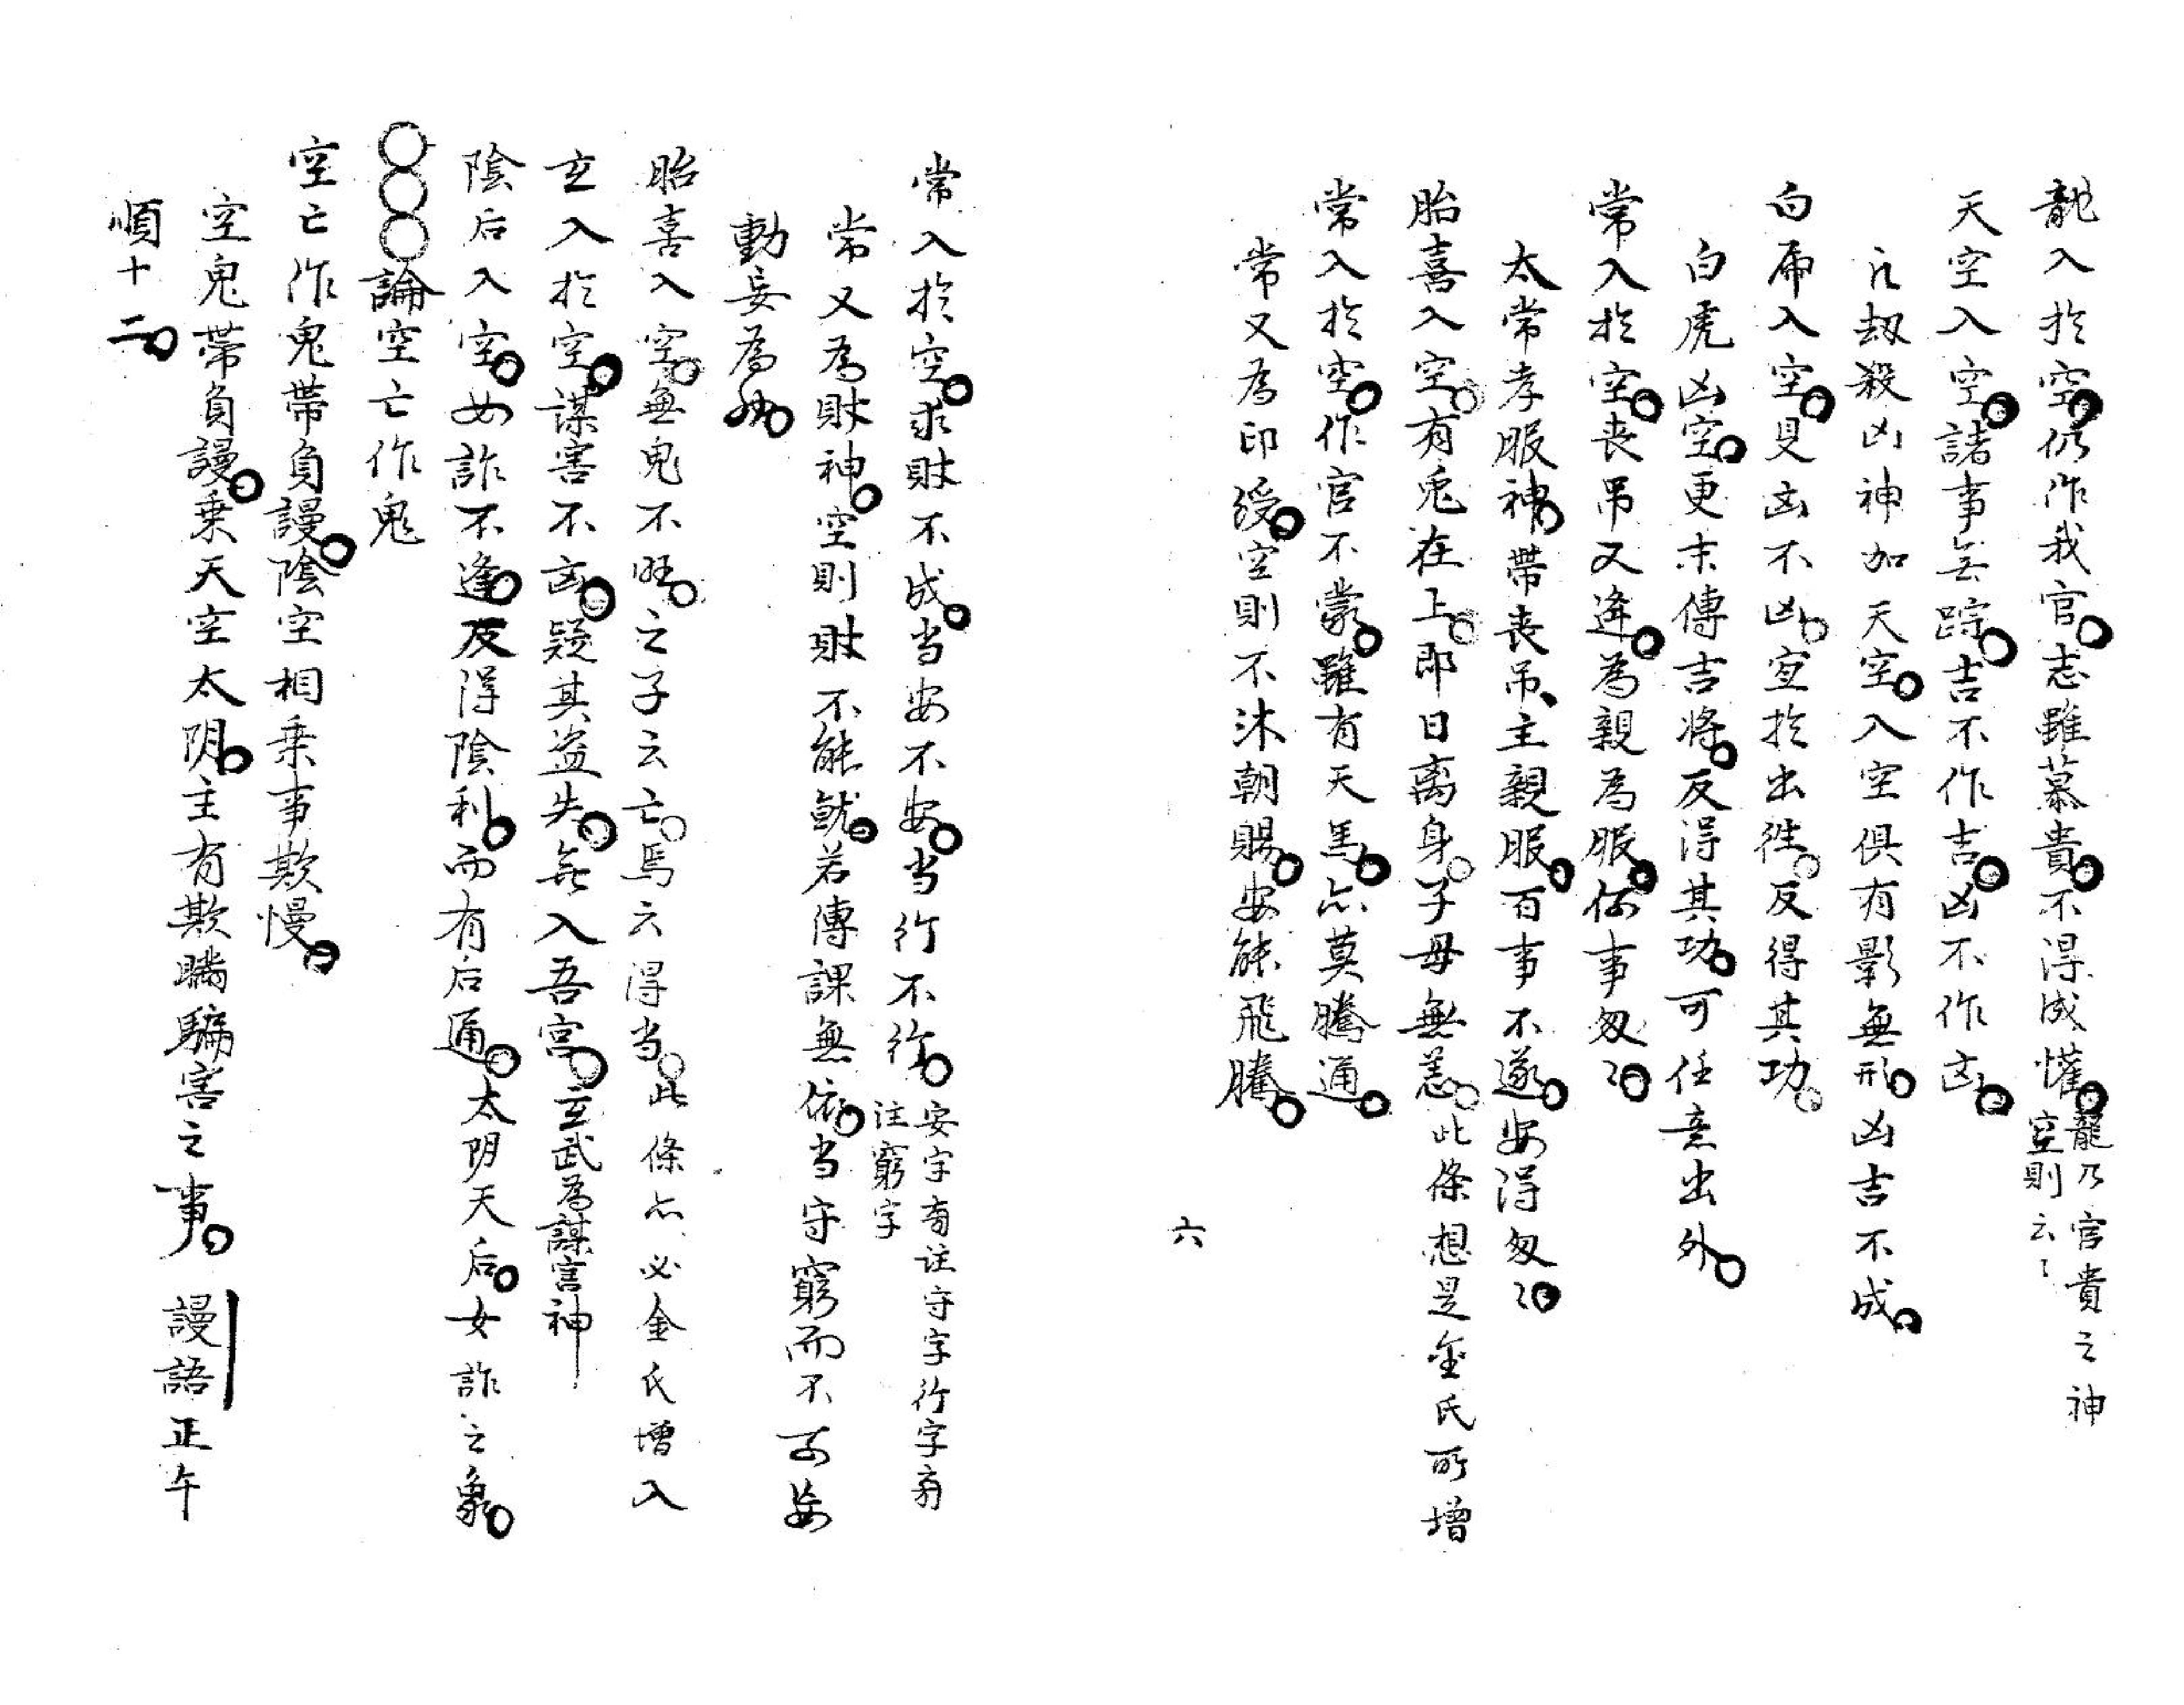 龍入於空。仍作我官。志雖慕貴。不得成懽。龍乃官貴之神空則云々
天空入空。諸事無踪。吉不作吉。凶不作凶。
凡劫殺凶神加天空。入空俱有影無形。凶吉不成。
白虎入空。見凶不凶。宜於出往。反得其功。
白虎凶空。更末傳吉將。反得其功。可任意出外。
常入於空。丧吊又逢。為親為服。何事匆々。
太常孝服神。帶丧吊、主親服。百事不遂。安得匆々。
胎喜入空。有兎在上。即日离身。子母無恙。此條想是金氏所增
常入於空。作官不蒙。雖有天馬。亦莫騰通。
常又為印綬。空則不沐朝賜。安能飛騰。
六
常入於空。求財不成。当安不安。当行不行。安字有注守字行字有注窮字
常又為財神。空則財不能就。若傳課無依。当守窮而不可妄
動妄為。
胎喜入空。無鬼不旺。之子云亡。焉云得当。此條亦必金氏增入
玄入於空。謀害不凶。疑其盗失。無入吾宮。玄武為謀害神
陰后入空。女詐不逢。反得陰利。而有后通。太阴天后。女詐之象。
○○○論空亡作鬼
空亡作鬼帶負謾。陰空相乗事欺慢。
空鬼帶負謾。乗天空太阴。主有欺瞞騙害之事。謾語正午
順十二。